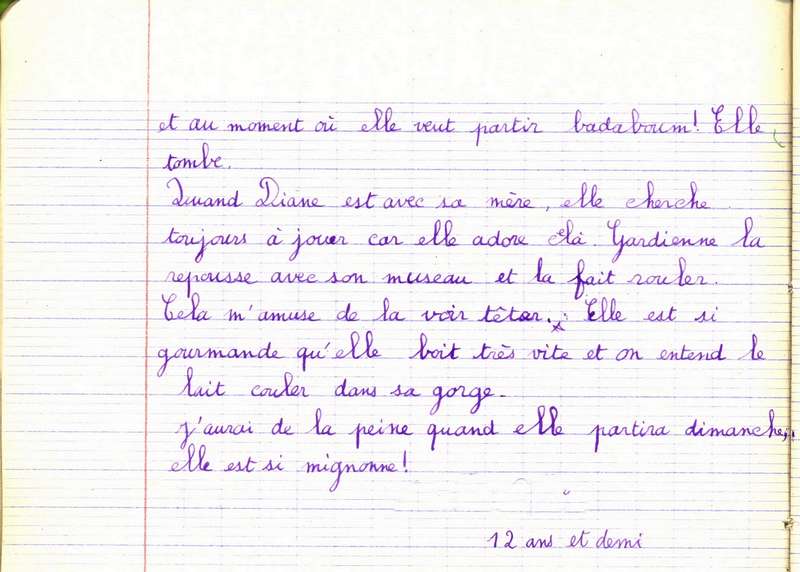 et au moment où elle veut partir badaboum! Elle
tombe.
Quand Diane est avec sa mère, elle cherche
toujours à jouer car elle adore celà. Gardienne la
repousse avec son museau et la fait rouler.
Cela m'amuse de la voir têter. Elle est si
gourmande qu'elle boit très vite et on entend le
lait couler dans sa gorge.
J'aurai de la peine quand elle partira dimanche,
elle est si mignonne!
12 ans et demi